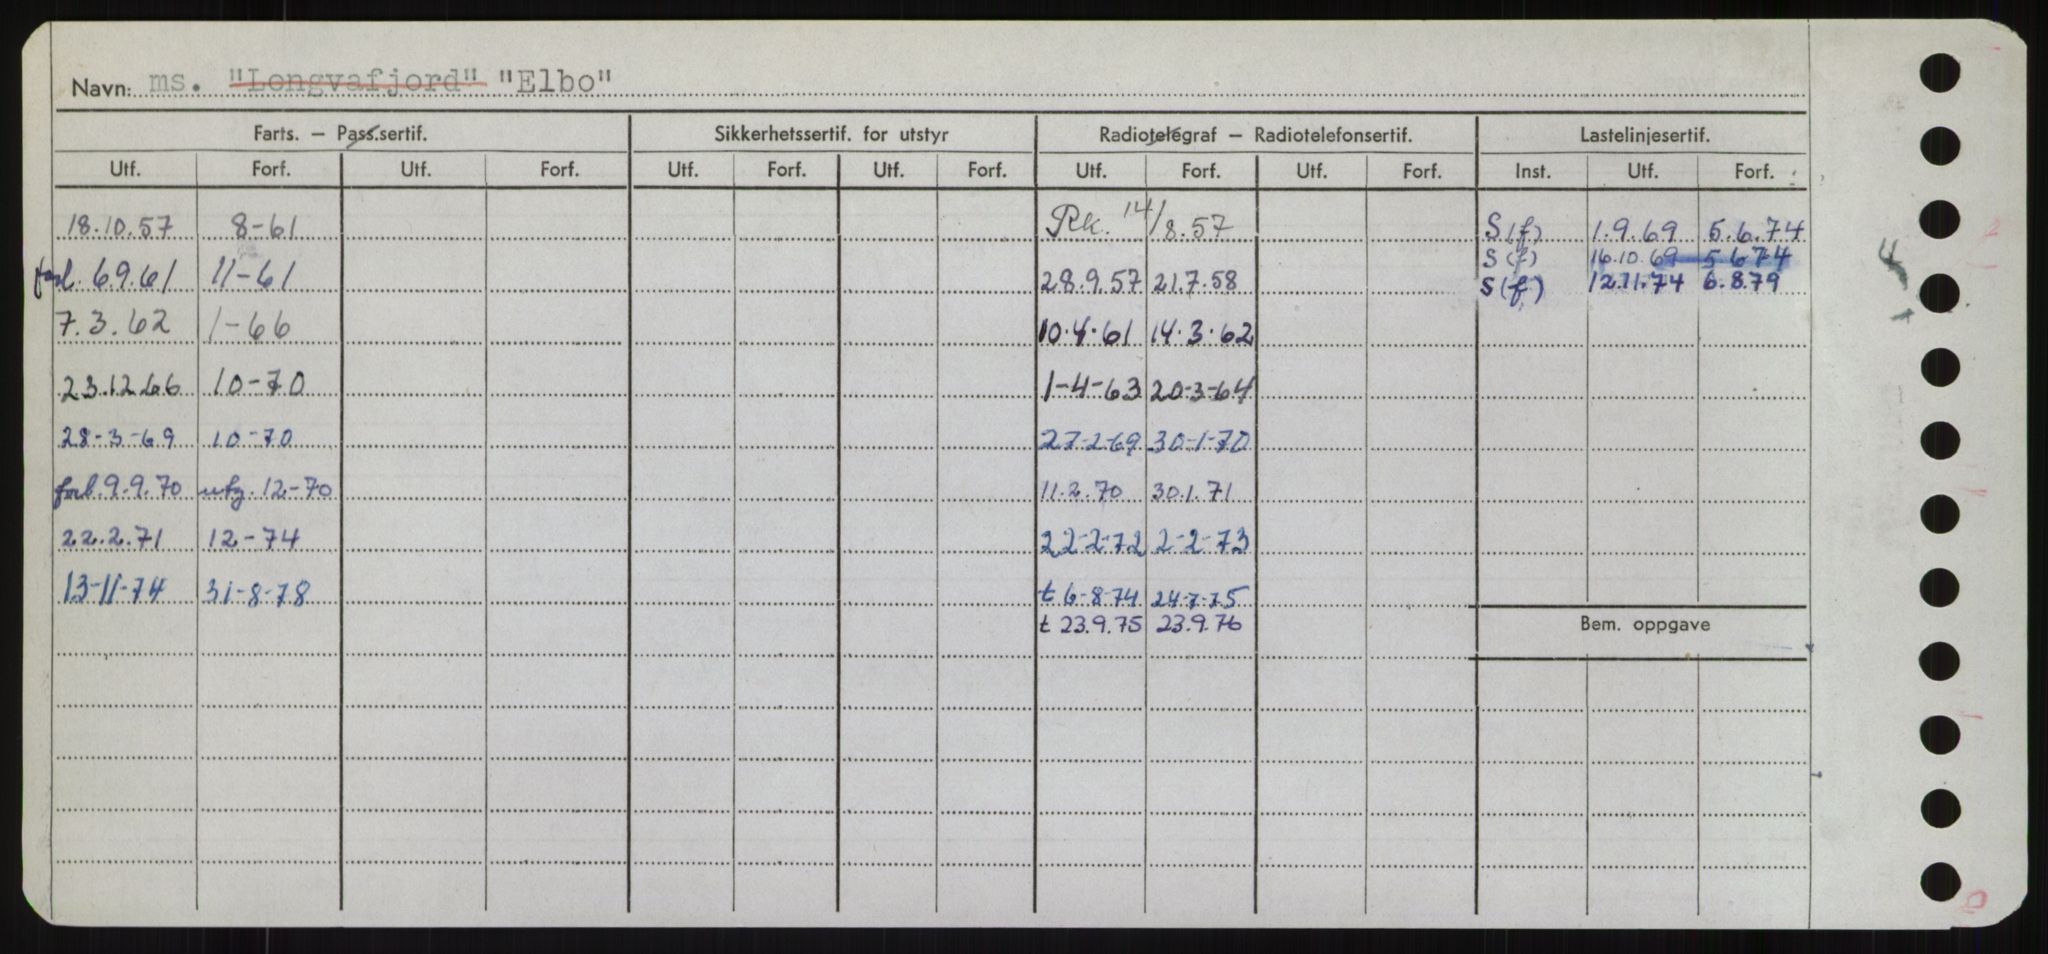 Navn: ms. "Longvafjord" "Elbo"
Farts. – Pass.sertif. Sikkerhetssertif. for utstyr Radiotelegraf – Radiotelefonsertif. Lastelinjesertif.
Utf. Forf. Utf. Forf. Utf. Forf. Utf. Forf. Utf. Forf. Utf. Forf. Inst. Utf. Forf.
18.10.57 8-61 Rk. 14/8.57 S(f) 1.9.69 5.6.74
S(f) 16.10.69 5 6 74
forl. 6.9.61 11-61 28.9.57 21.7.58 S(f) 12.11.74 6.8.79
7.3.62 1-66 10.4.61 14.3.62
23.12.66 10-70 1-4-63 20-3-64
28-3-69 10-70 27-2-69 30-1-70
forl. 9.9.70 utg. 12-70 11.2.70 30.1.71
22.2.71 12-74 22-2-72 2-2-73
13-11-74 31-8-78 t 6-8-74 24-7-75
t 23.9.75 23.9.76
Bem. oppgave